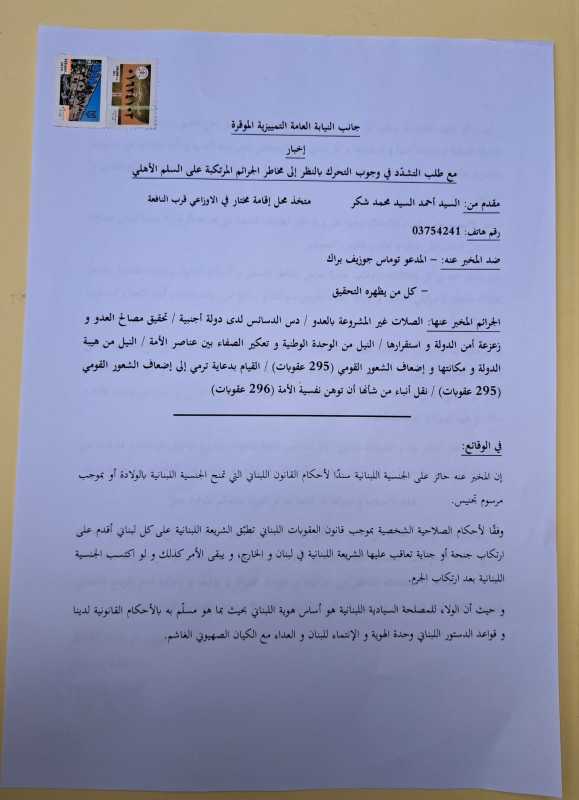 جانب النيابة العامة التمييزية الموقرة
إخبار
مع طلب التشدّد في وجوب التحرك بالنظر إلى مخاطر الجرائم المرتكبة على السلم الأهلي
مقدم من: السيد أحمد السيد محمد شكر متخذ محل إقامة مختار في الاوزاعي قرب النافعة
رقم هاتف: 03754241
ضد المخبر عنه: – المدعو توماس جوزيف براك
– كل من يظهره التحقيق
الجرائم المخبر عنها: الصلات غير المشروعة بالعدو / دس الدسائس لدى دولة أجنبية / تحقيق مصالح العدو و
زعزعة أمن الدولة و استقرارها / النيل من الوحدة الوطنية و تعكير الصفاء بين عناصر الأمة / النيل من هيبة
الدولة و مكانتها و إضعاف الشعور القومي (295 عقوبات) / القيام بدعاية ترمي إلى إضعاف الشعور القومي
(295 عقوبات) / نقل أنباء من شأنها أن توهن نفسية الأمة (296 عقوبات)
في الوقائع:
إن المخبر عنه حائز على الجنسية اللبنانية سندًا لأحكام القانون اللبناني التي تمنح الجنسية اللبنانية بالولادة أو بموجب
مرسوم تجنيس.
وفقًا لأحكام الصلاحية الشخصية بموجب قانون العقوبات اللبناني تطبّق الشريعة اللبنانية على كل لبناني أقدم على
ارتكاب جنحة أو جناية تعاقب عليها الشريعة اللبنانية في لبنان و الخارج، و يبقى الأمر كذلك و لو اكتسب الجنسية
اللبنانية بعد ارتكاب الجرم.
و حيث أن الولاء للمصلحة السيادية اللبنانية هو أساس هوية اللبناني بحيث بما هو مسلّم به بالأحكام القانونية لدينا
و قواعد الدستور اللبناني وحدة الهوية و الإنتماء للبنان و العداء مع الكيان الصهيوني الغاشم.